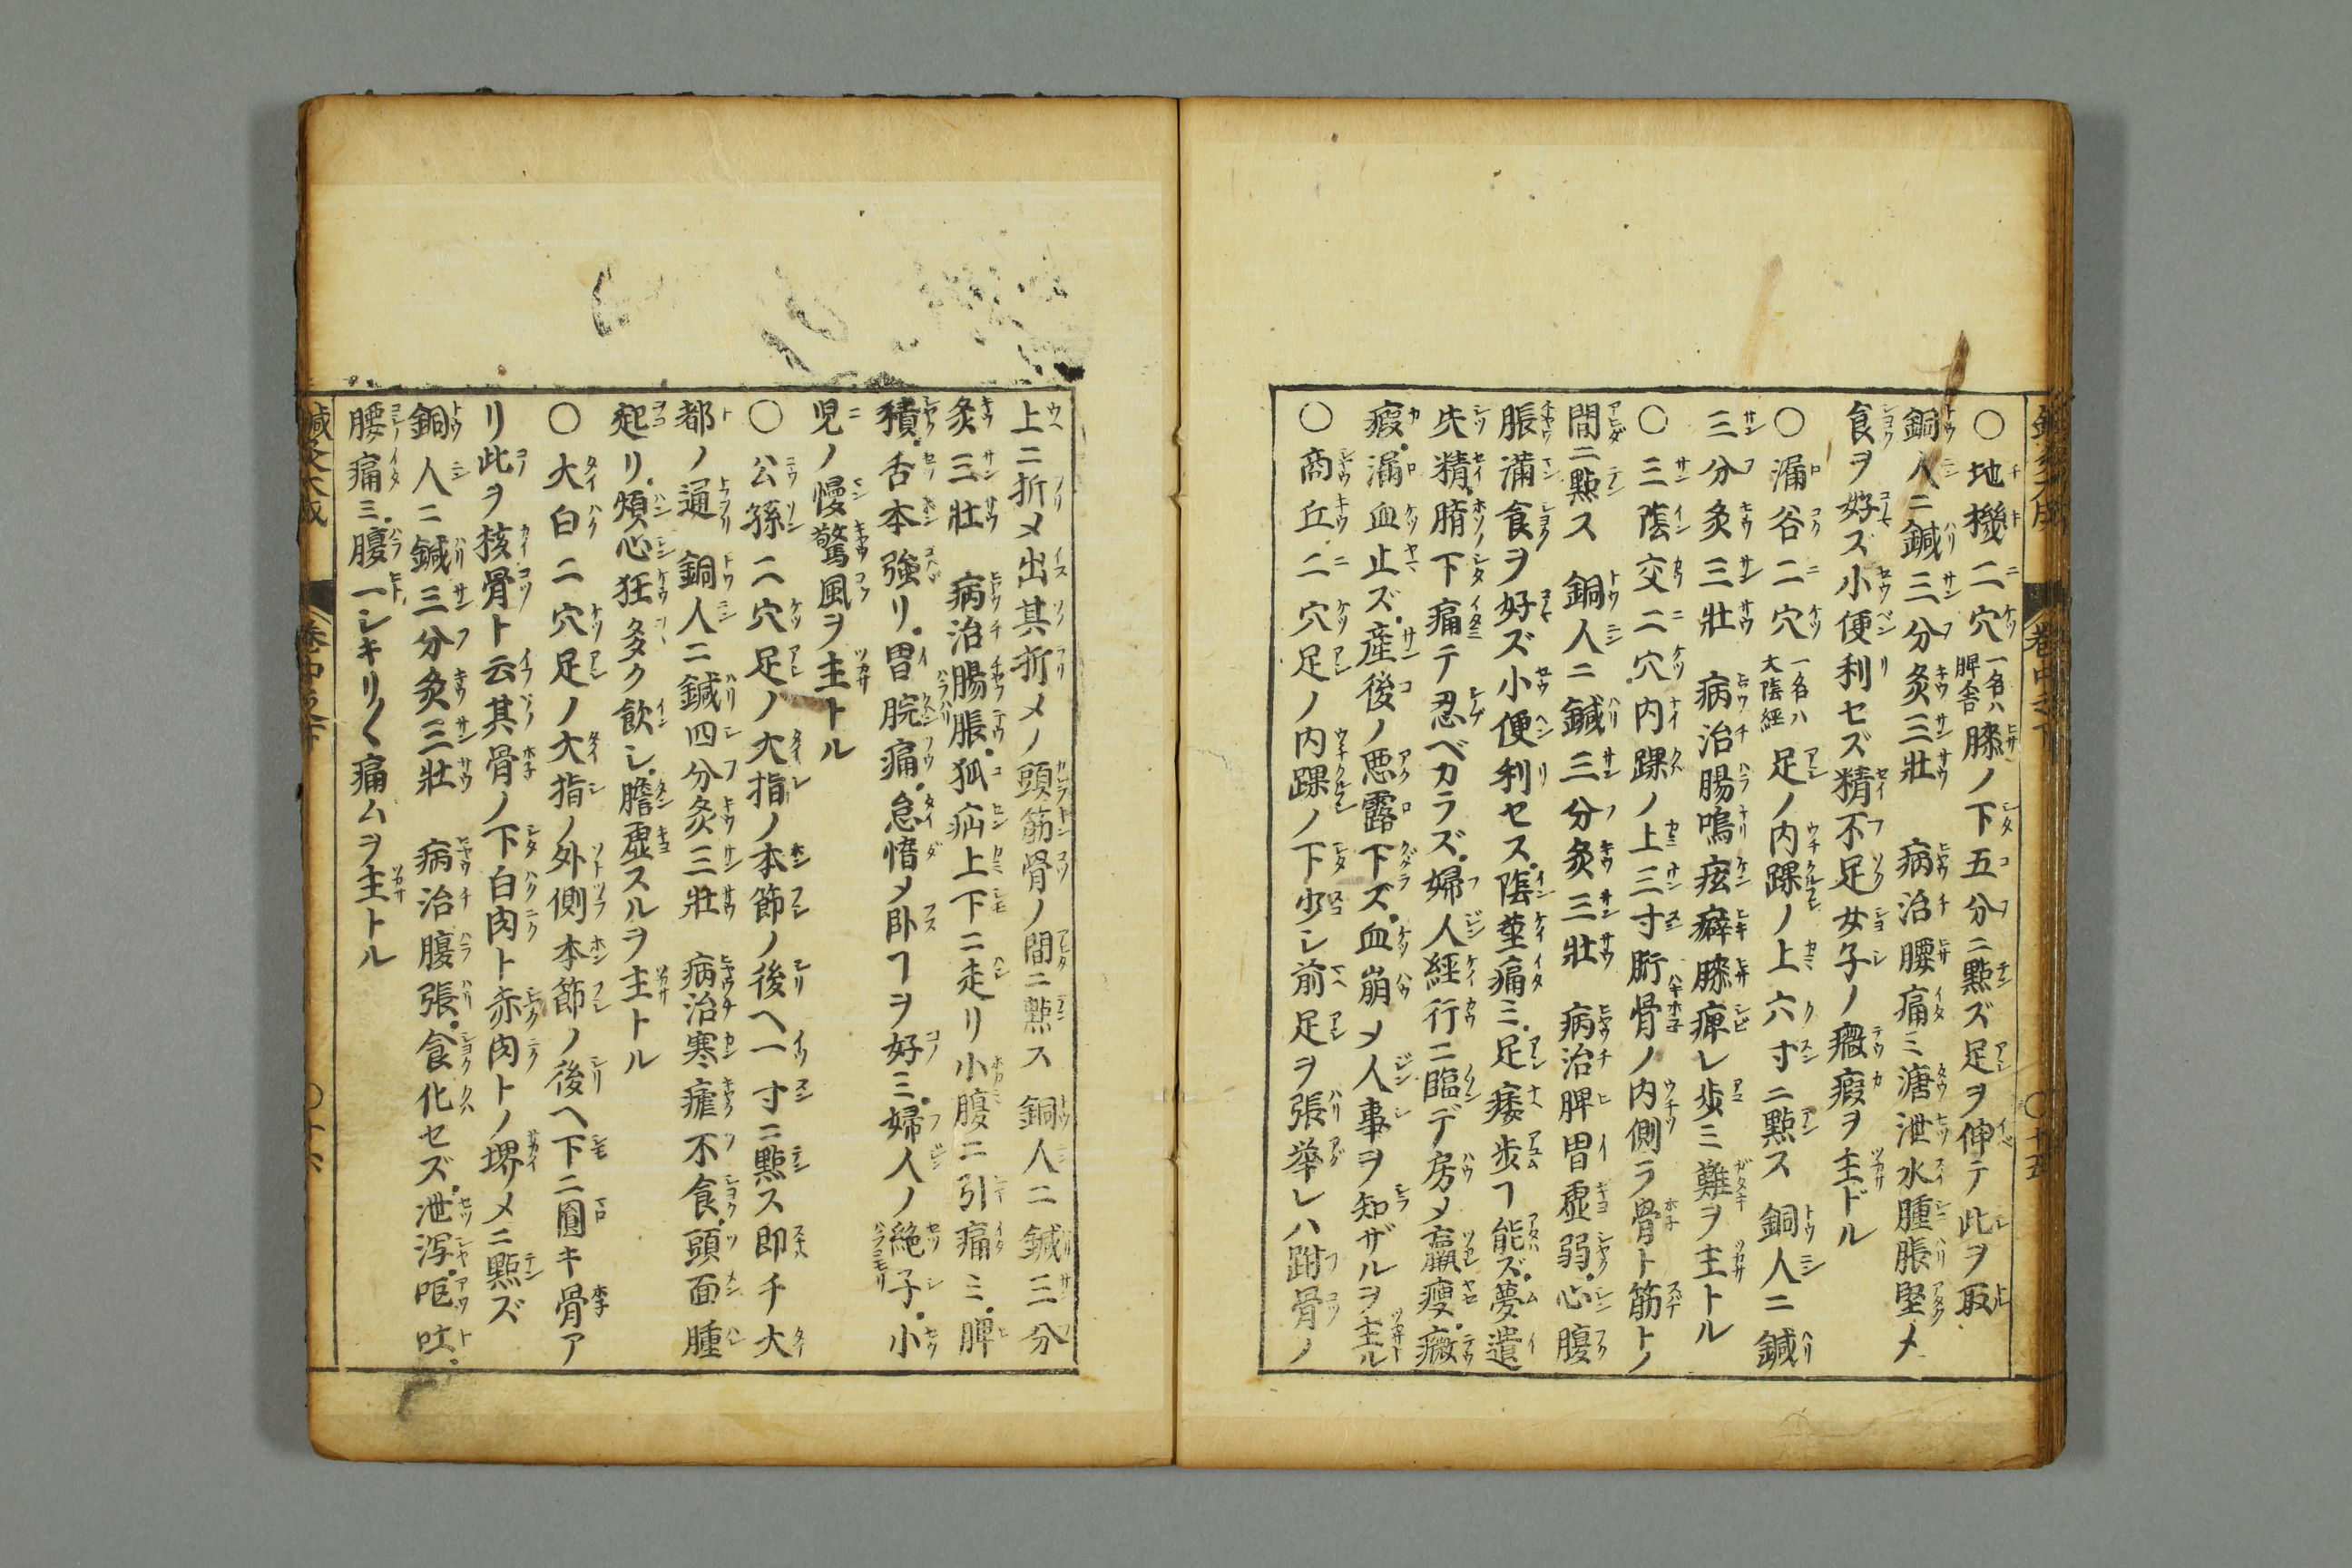 ○地機二穴一名ハ脾舎膝ノ下五分ニ點ズ足ヲ伸テ此ヲ取
銅人ニ鍼三分灸三壯　病治腰痛ミ溏泄水腫脹堅メ
食ヲ好ズ小便利セズ精不足女子ノ癥瘕ヲ主ドル
○漏谷二穴一名ハ大陰經足ノ内踝ノ上六寸ニ點ス銅人ニ鍼
三分灸三壯　病治腸鳴痃癖膝痺レ歩ミ難ヲ主トル
○三陰交二穴内踝ノ上三寸胻骨ノ内側ラ骨ト筋トノ
間ニ點ス　銅人ニ鍼三分灸三壯　病治脾胃虚弱心腹
脹滿食ヲ好ズ小便利セス陰莖痛ミ足痿歩ヿ能ズ夢遺
失精臍下痛テ忍ベカラズ婦人經行ニ臨デ房メ羸瘦癥
瘕漏血止ズ産後ノ悪露下ズ血崩メ人事ヲ知ザルヲ主ル
○商丘二穴足ノ内踝ノ下少シ前足ヲ張挙レハ跗骨ノ
上ニ折メ出其折メノ頭筋骨ノ間ニ點ス　銅人ニ鍼三分
灸三壯　病治腸脹狐疝上下ニ走リ小腹ニ引痛ミ脾
積舌本強リ胃脘痛怠惰メ卧ヿヲ好ミ婦人ノ絶子小
児ノ慢驚風ヲ主トル
○公孫二穴足ノ大指ノ本節ノ後ヘ一寸ニ點ス即チ大
都ノ通　銅人ニ鍼四分灸三壯　病治寒瘧不食頭面腫
起リ煩心狂多ク飲シ膽虚スルヲ主トル
○大白二穴足ノ大指ノ外側本節ノ後ヘ下ニ圓キ骨ア
リ此ヲ核骨ト云其骨ノ下白肉ト赤肉トノ堺メニ點ズ
銅人ニ鍼三分灸三壯　病治腹張食化セズ泄瀉嘔吐
腰痛ミ腹一シキリ〱痛ムヲ主トル
鍼灸大成　卷中之下　○十六